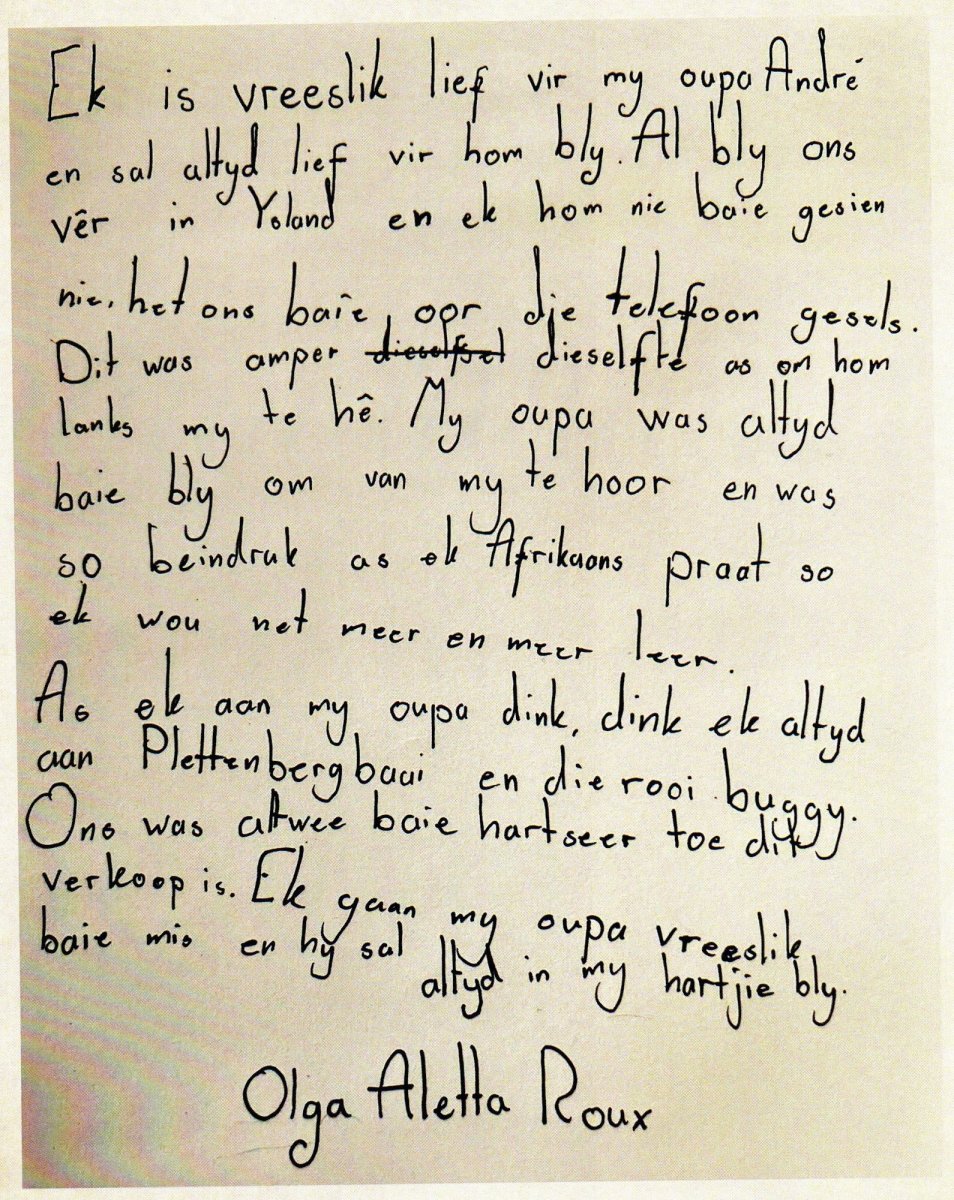 Ek is vreeslik lief vir my oupa André
en sal altyd lief vir hom bly. Al bly ons
vêr in Ysland en ek hom nie baie gesien
nie, het ons baie oor die telefoon gesels.
Dit was amper dieselfte as om hom
lanks my te hê. My oupa was altyd
baie bly om van my te hoor en was
so beindruk as ek Afrikaans praat so
ek wou net meer en meer leer.
As ek aan my oupa dink, dink ek altyd
aan Plettenbergbaai en die rooi buggy.
Ons was altwee baie hartseer toe dit
verkoop is. Ek gaan my oupa vreeslik
baie mis en hy sal altyd in my hartjie bly.
Olga Aletta Roux